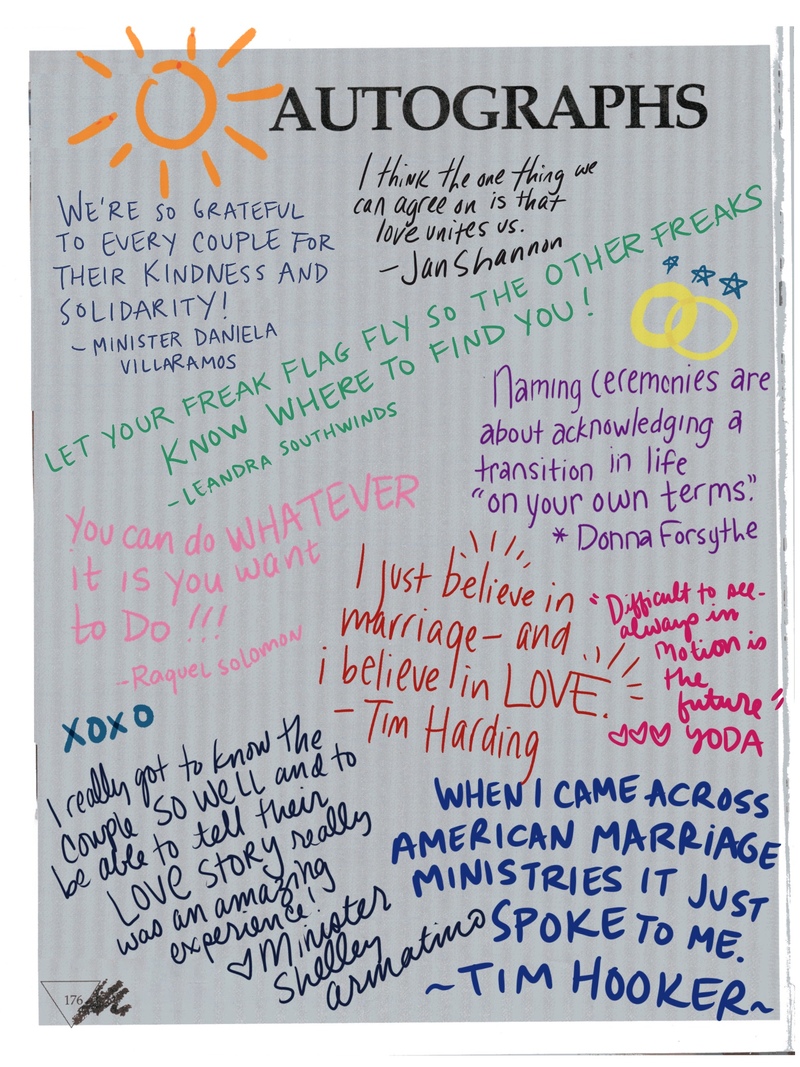 AUTOGRAPHS
WE'RE SO GRATEFUL
TO EVERY COUPLE FOR
THEIR KINDNESS AND
SOLIDARITY!
- MINISTER DANIELA
VILLARAMOS
I think the one thing we
can agree on is that
love unites us.
- Jan Shannon
LET YOUR FREAK FLAG FLY SO THE OTHER FREAKS
KNOW WHERE TO FIND YOU!
- LEANDRA SOUTHWINDS
Naming ceremonies are
about acknowledging a
transition in life
"on your own terms."
* Donna Forsythe
You can do WHATEVER
it is you want
to Do!!!
- Raquel Solomon
I just believe in
marriage - and
i believe in LOVE.
- Tim Harding
"Difficult to see-
always in
motion is
the
future"
♡♡♡ YODA
XOXO
I really got to know the
couple so well and to
be able to tell their
LOVE STORY really
was an amazing
experience!
♡ Minister
Shelley
armatino
WHEN I CAME ACROSS
AMERICAN MARRIAGE
MINISTRIES IT JUST
SPOKE TO ME.
~TIM HOOKER~
176